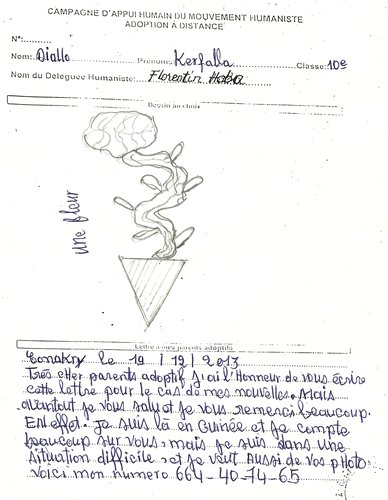 CAMPAGNE D'APPUI HUMAIN DU MOUVEMENT HUMANISTE
ADOPTION A DISTANCE
N°:..........
Nom: Diallo Prénom: Kerfalla Classe: 10e
Nom du Délégué Humaniste: Florentin Haba
Dessin au choix
Une fleur
Lettre à mes parents adoptifs
Conakry le 19 / 19 / 2013
Très cher parents adoptif j'ai l'Honneur de vous écrire
cette lettre pour le cas de mes nouvelles. Mais
avantout je vous salut et je vous remerci beaucoup.
EN effet. je suis là en Guinée et je compte
beaucoup sur vous, mais je suis dans une
situation difficile, et je veut Aussi de vos pHoto
Voici mon numero 664-40-74-65